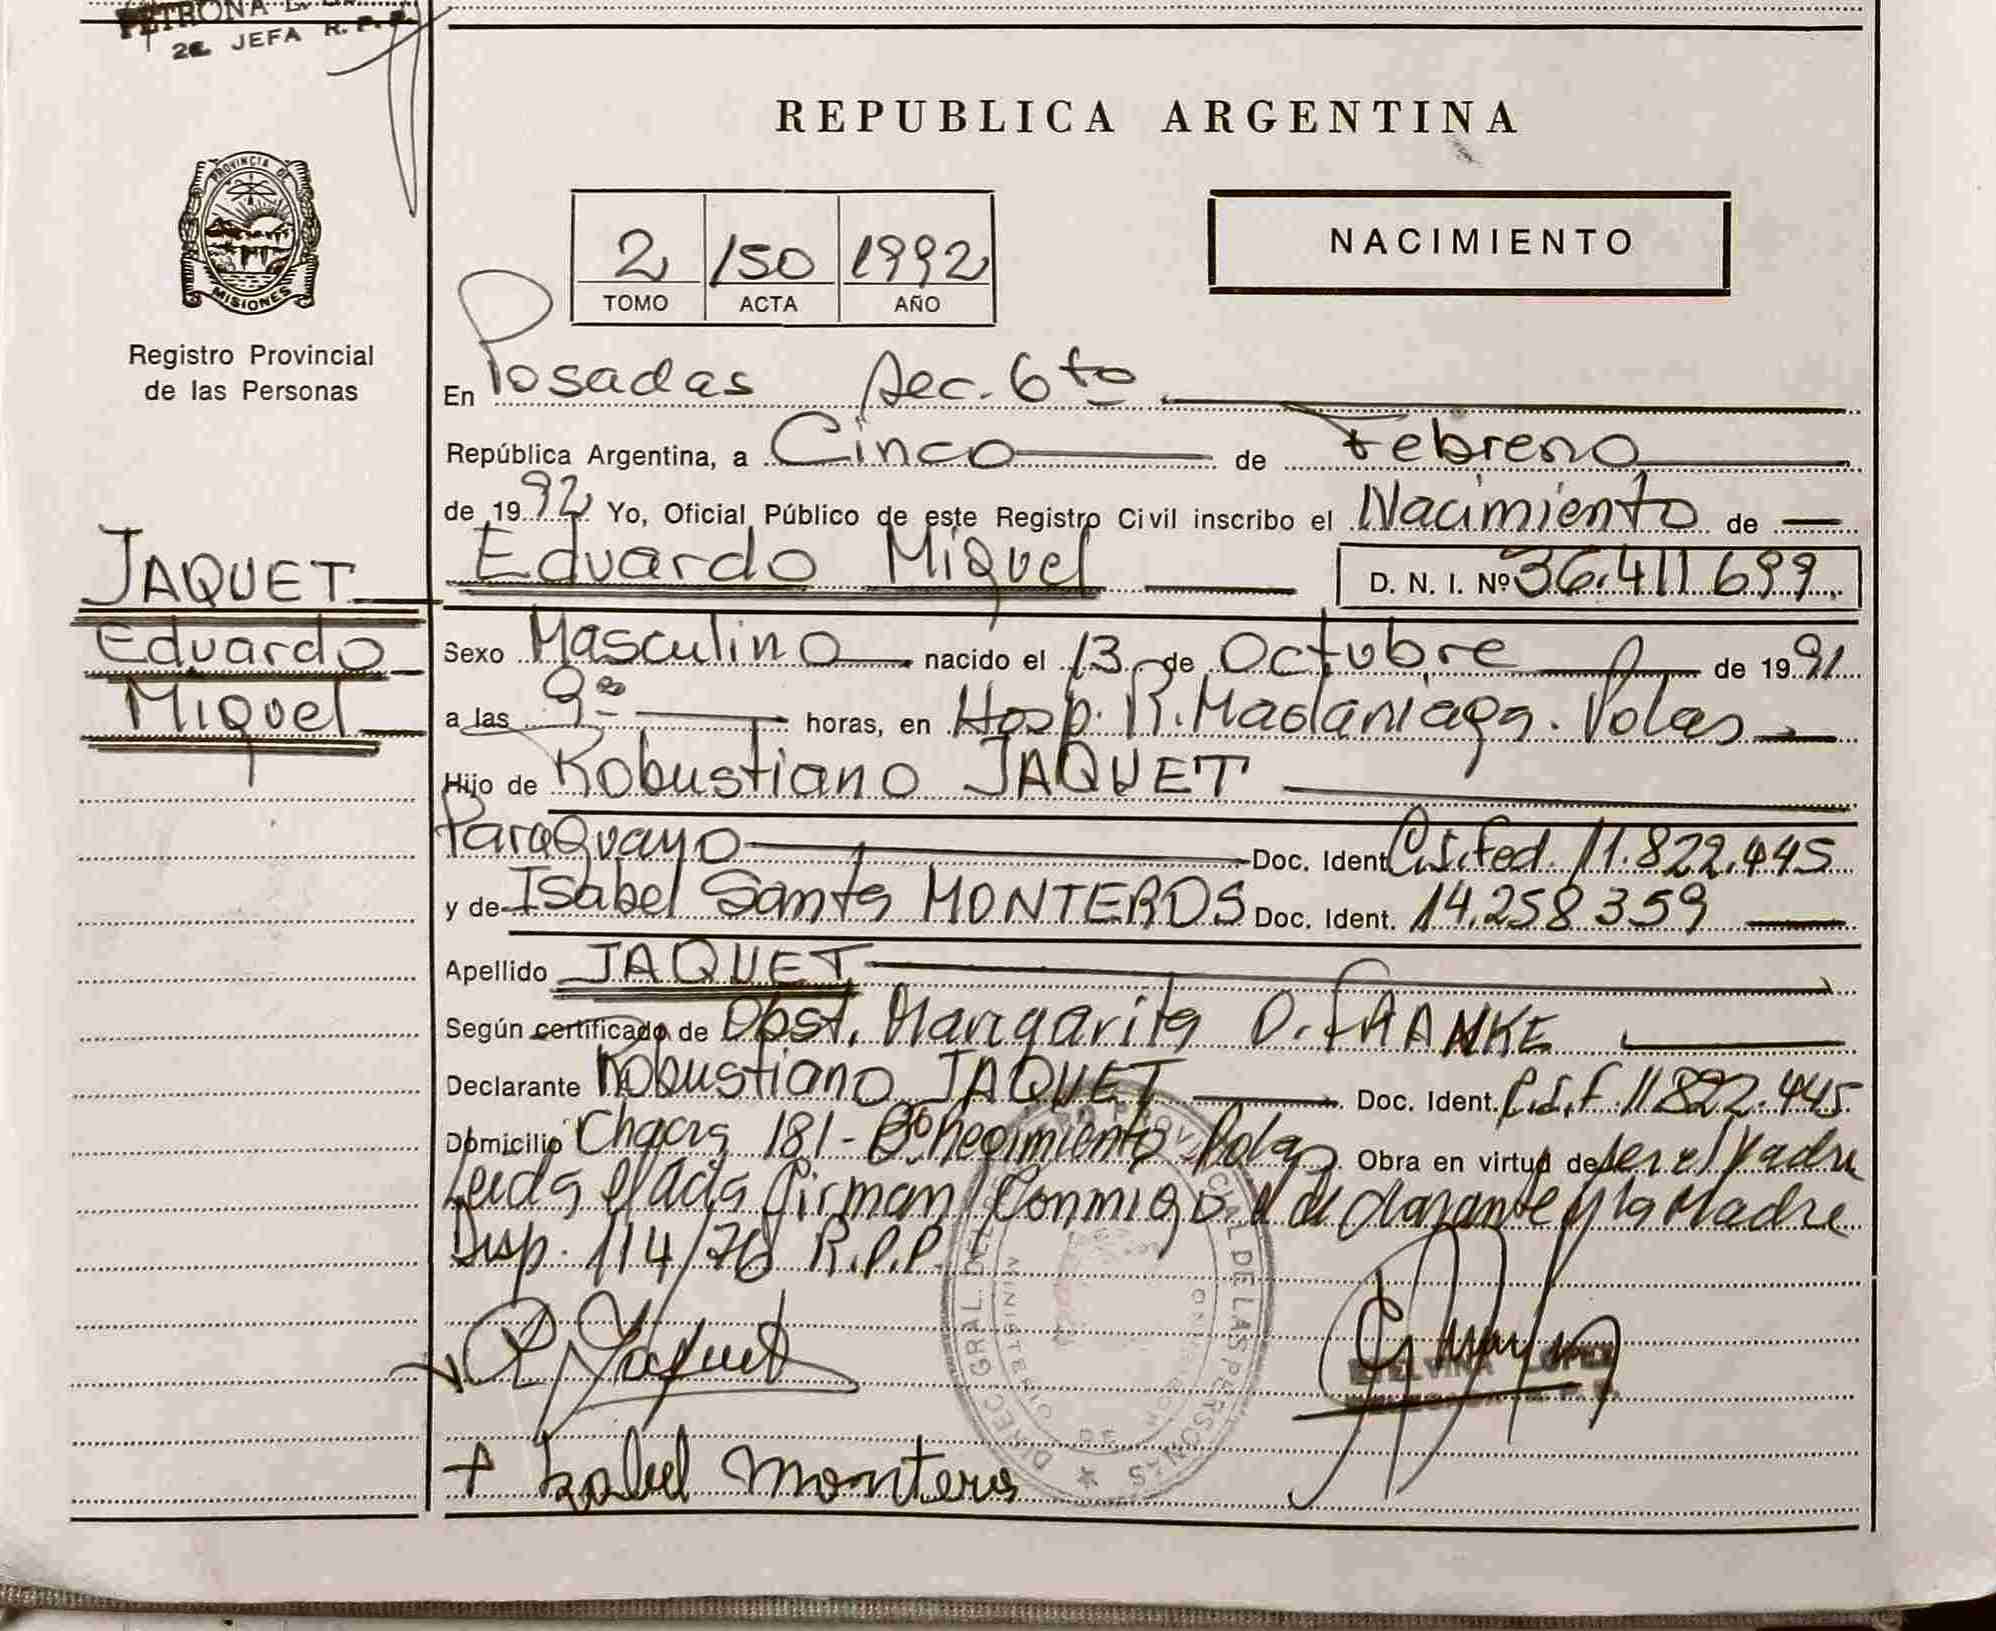 PETRONA
2a JEFA R.P.P.
PROVINCIA DE
MISIONES
Registro Provincial
de las Personas
JAQUET
Eduardo
Miguel
REPUBLICA ARGENTINA
2 150 1992
TOMO ACTA AÑO
NACIMIENTO
En Posadas Sec. 6ta
República Argentina, a Cinco de Febrero
de 1992 Yo, Oficial Público de este Registro Civil inscribo el Nacimiento de
Eduardo Miguel D. N. I. Nº 36.411.699
Sexo Masculino nacido el 13 de Octubre de 1991
a las 9 horas, en Hosp. R. Madariaga. Pdas
Hijo de Robustiano JAQUET
Paraguayo Doc. Ident. C.I. Fed. 11.822.445
y de Isabel Santa MONTEROS Doc. Ident. 14.258.359
Apellido JAQUET
Según certificado de Obst. Margarita D. FRANKE
Declarante Robustiano JAQUET Doc. Ident. C.I.F. 11.822.445
Domicilio Chacra 181 - Bº Regimiento Pdas Obra en virtud de ser el Padre
Leída el Acta Firman Conmigo el declarante y la Madre
Disp. 114/78 R.P.P.
R Jaquet
ETELVINA LOPEZ
+ Izabel Monteros
DIREC. GRAL. DEL REGISTRO PROVINCIAL DE LAS PERSONAS
MINISTERIO DE GOBIERNO